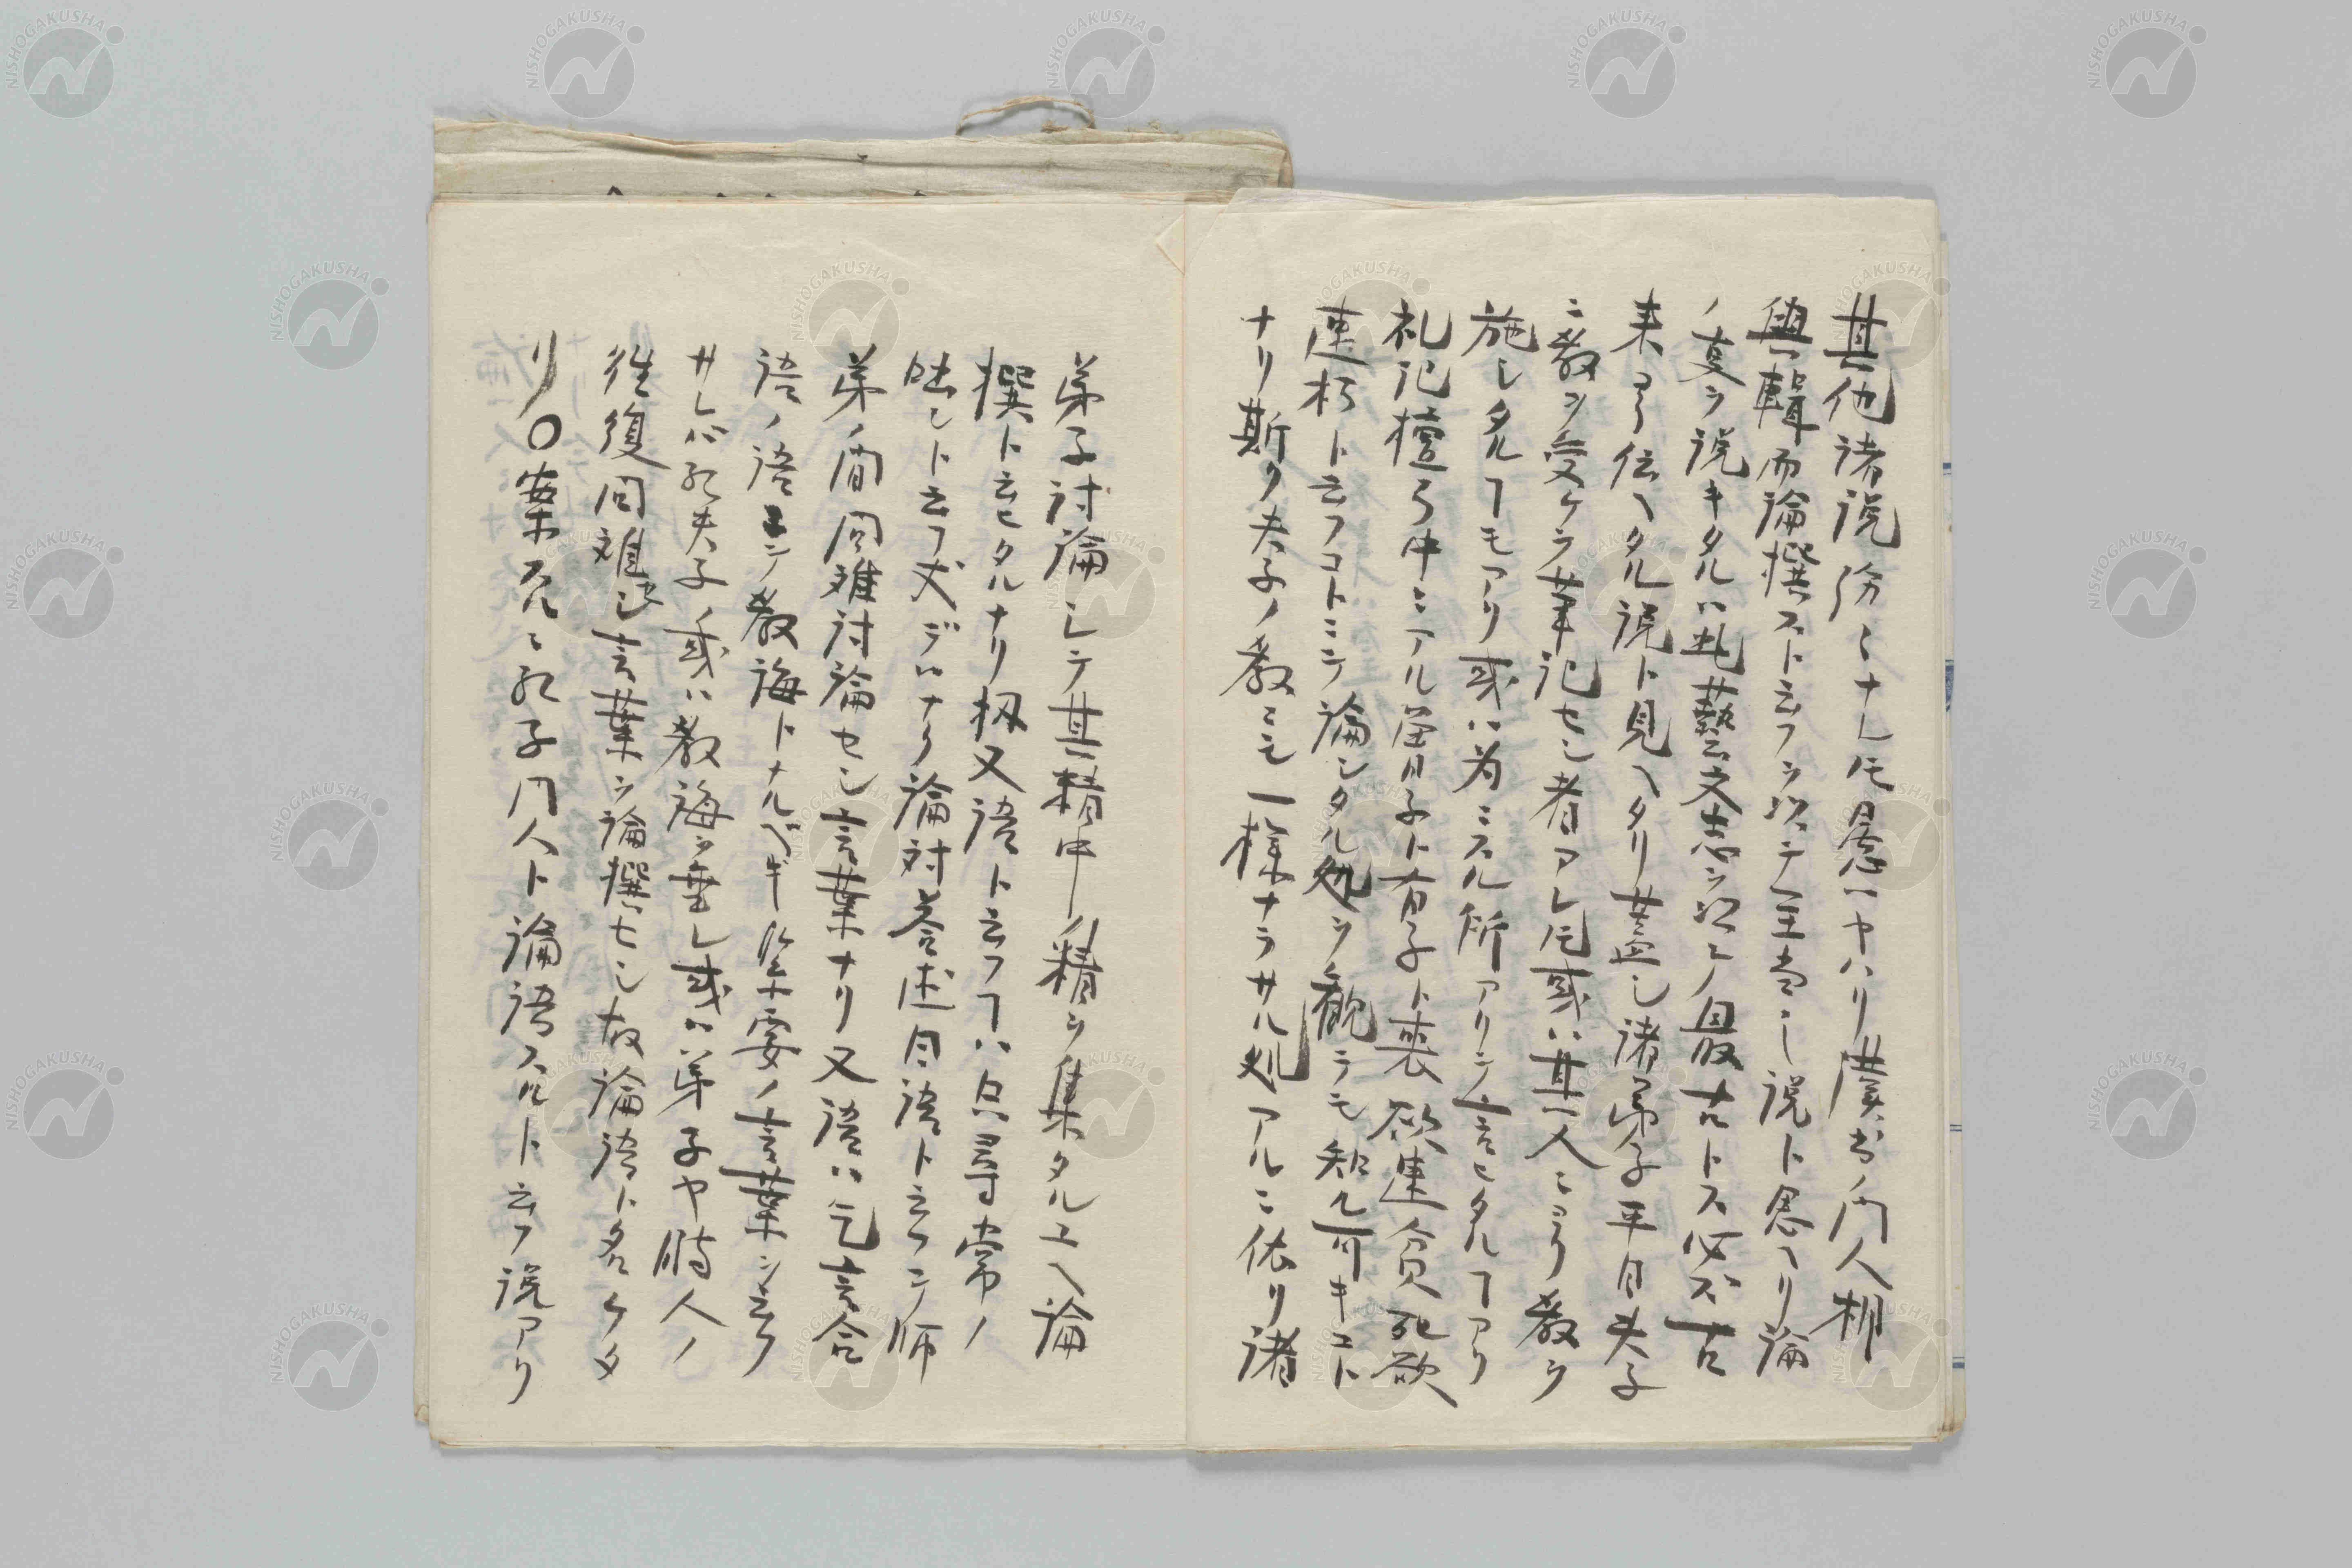 其他諸説紛々ナレ𪜈愚ハヤハリ漢書ノ門人相
與輯而論撰スト云フヲ以テ至当ノ説ト思ヘリ論
ノ㕝ヲ説キタルハ此藝文志ヲ以テノ最古トス必ズ古
来ヨリ伝ヘタル説ト見ヘタリ蓋シ諸弟子平日夫子
ニ教ヲ受ケテ筆記セシ者アレ𪜈或ハ其人ニヨリ教ヲ
施シタルヿモアリ或ハ為ニスル所アリテ言ヒタルヿアリ
礼記檀弓中ニアル曽子ト有子ト喪欲速貧死欲
速朽ト云フコトニテ論シタル処ヲ観テモ知ル可キコト
ナリ斯ク夫子ノ教ニモ一様ナラサル処アルニ依リ諸
弟子討論シテ其精中ノ精ヲ集タルユヘ論
撰ト云ヒタルナリ扨又語ト云フヿハ只尋常ノ
咄シト云フ丈デハナク論対荅述曰語ト云フテ師
弟ノ間問難討論セシ言葉ナリ又語ハ乞言合
語ノ語ニテ教誨トナルベキ緊要ノ言葉ヲ云フ
サレバ孔夫子ノ或ハ教誨ヲ垂レ或ハ弟子ヤ時人ノ
往復問難セシ言葉ヲ論撰セシ故論語ト名ケタ
リ〇案スルニ孔子門人ト論語スルト云フ説アリ
NISHOGAKUSHA